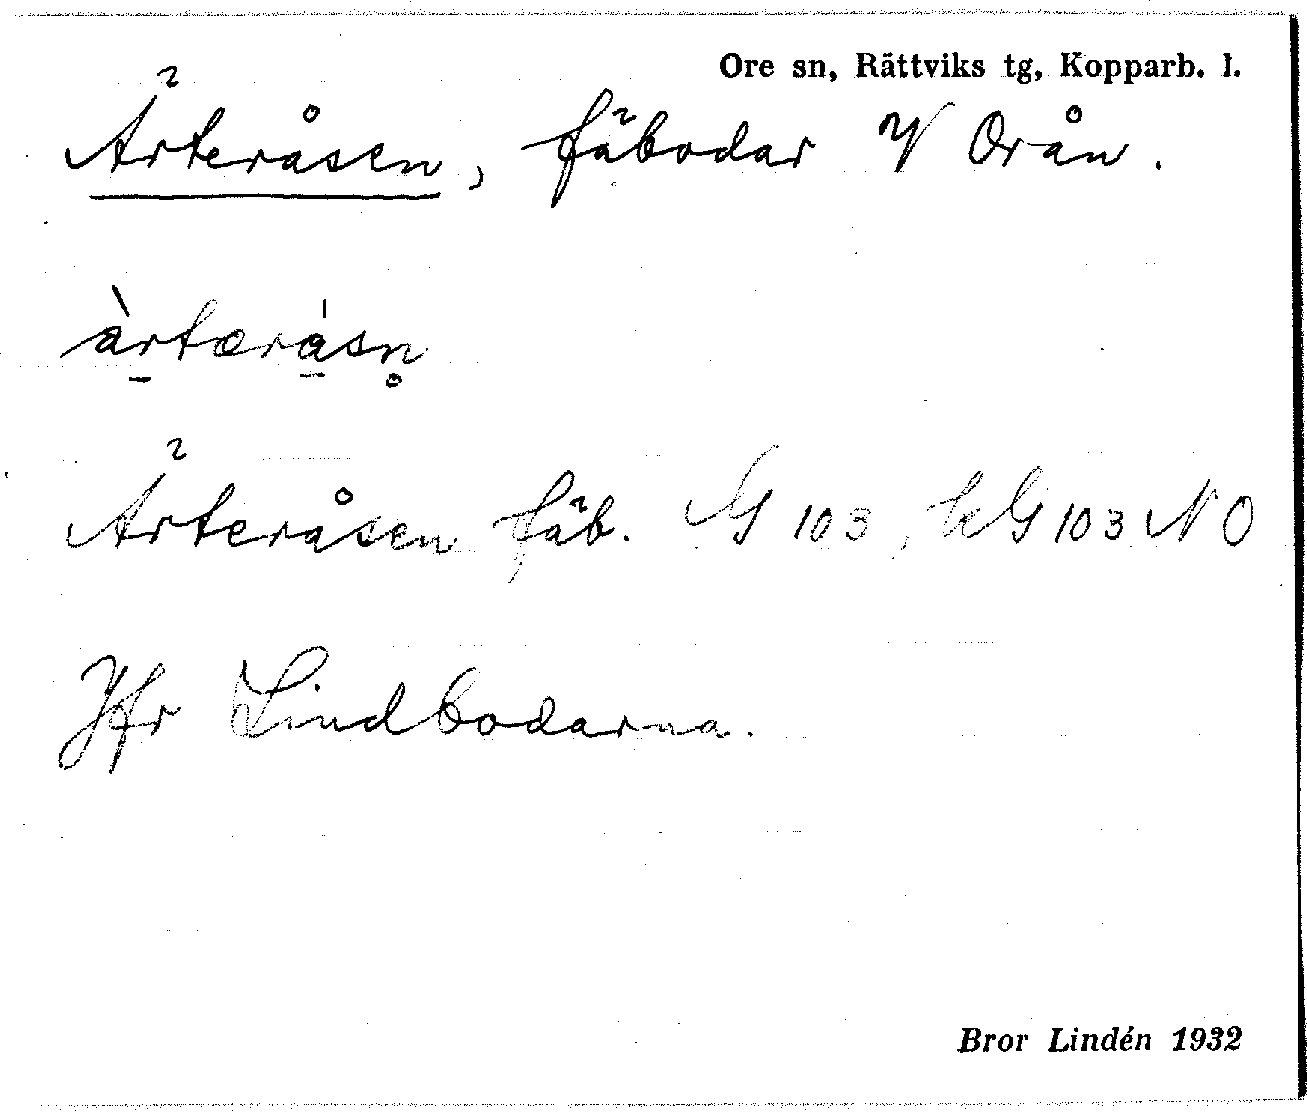 Ore sn, Rättviks tg, Kopparb. l.
Ärteråsen, fäbodar V Orån.
àrtæråsn̥
Ärteråsen fäb. G 103, kG 103 NO
Jfr Lindbodarna.
Bror Lindén 1932